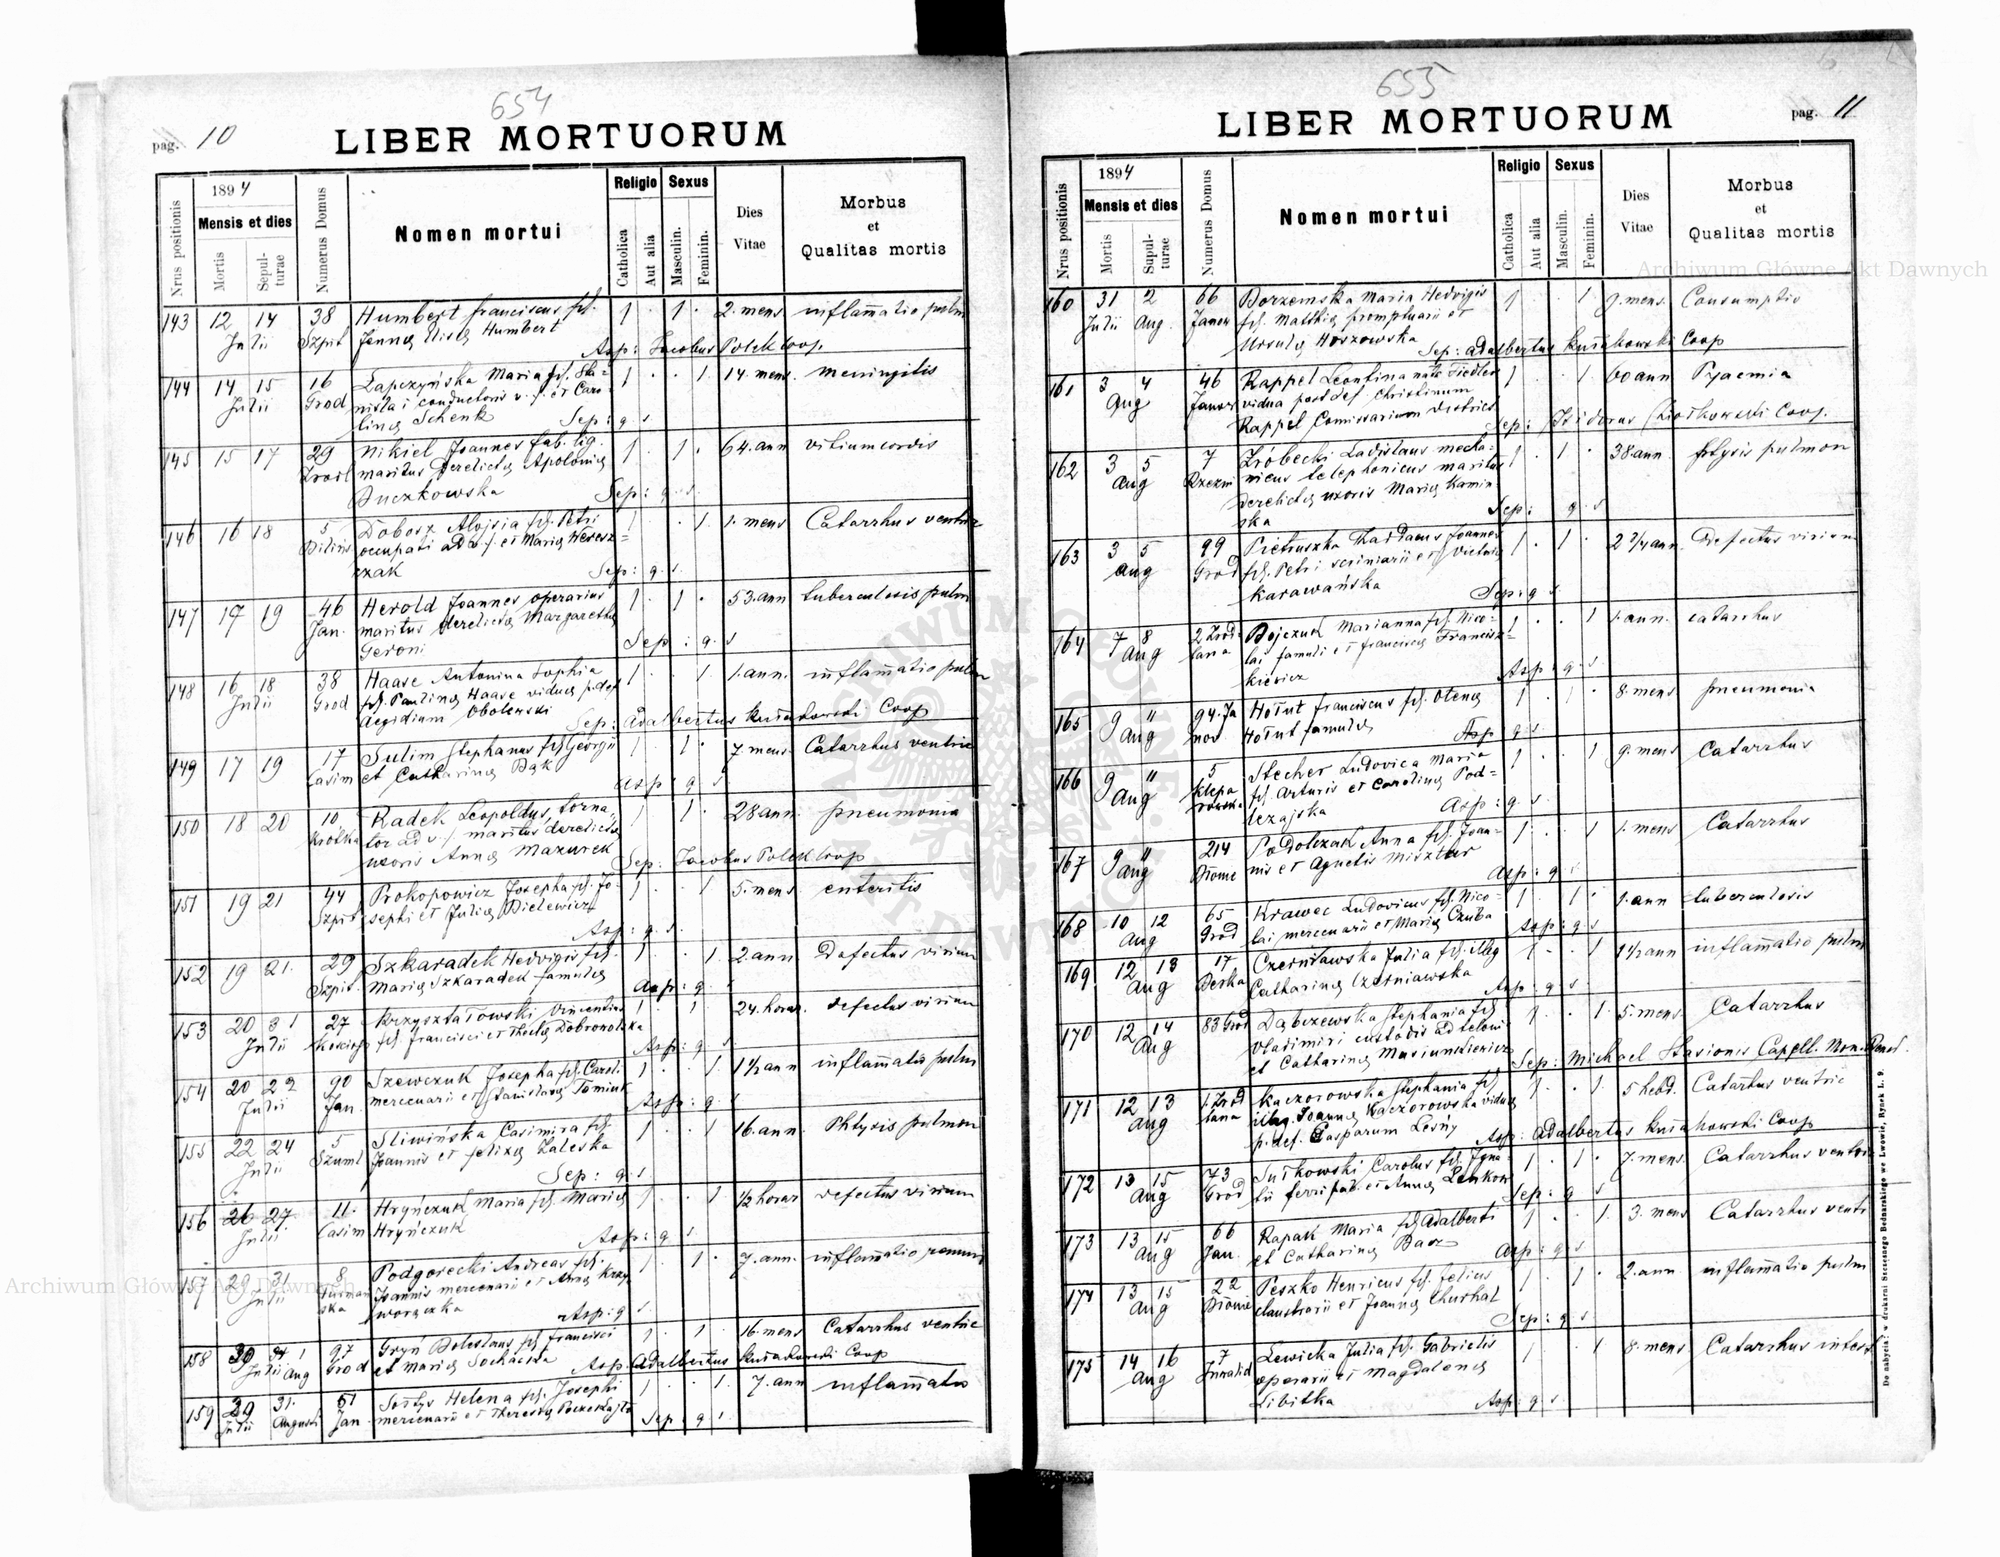 654
pag. 10
LIBER MORTUORUM
Nrus positionis
1894
Mensis et dies
Mortis
Sepulturae
Numerus Domus
Nomen mortui
Religio
Catholica
Aut alia
Sexus
Masculin.
Feminin.
Dies Vitae
Morbus et Qualitas mortis
143 12 14 38 Humbert Franciscus fil. 1 . 1 . 2. mens inflam̄atio pulm
Julii Szpit Humbert
Asp: Jacobus Polek Coop.
144 14 15 16 Łapczyńska Maria fil. Sta- 1 . . 1 14. mens. meningitis
Julii Grod nislai conductoris et Caro-
linę Schenk Sep: q. s.
145 15 17 29 Nikiel Joannes fab. lig. 1 . 1 . 64. ann vitium cordis
maritus derelictę Apolonię
Buczkowska Sep: q. s.
146 16 18 5 Dobosz Aloisia fil. Petri 1 . . 1 1. mens Catarrhus ventric
occupati ad et Marię Heresz=
czak Sep: q. s.
147 17 19 46 Herold Joannes operarius 1 . 1 . 53. ann tuberculosis pulm
Jan. maritus derelictę Margarethę
Geroni Sep: q. s
148 16 18 38 Haase Antonina Sophia 1 . . 1 1. ann. inflam̄atio pulm
Julii Grod fil. Paulinę Haase viduę p. def
Aegidium Obolenski Sep: Adalbertus Kuśiakowski Coop
149 17 19 17 Sulim Stephanus fil. Georgii 1 . 1 . 7 mens. Catarrhus ventric
Casim et Catharinę Bąk Asp: q. s
150 18 20 10 Radek Leopoldus torna- 1 . 1 . 28 ann. pneumonia
Krótka tor maritus derelictę
uxoris Annę Mazurek Sep: Jacobus Polek Coop
151 19 21 44 Prokopowicz Josepha fil. Jo- 1 . . 1 5. mens enteritis
Szpit sephi et Julię Bielewicz
Asp: q. s.
152 19 21. 29 Szkaradek Hedvigis fil. 1 . . 1 2. ann Defectus virium
Szpit. Marię Szkaradek famulę Asp: q. s
153 20 27 Krzyształowski Vincentius 1 . 1 . 24. horar defectus virium
Julii fil. Francisci et Theclę Dobrowolska
Asp: q. s
154 20 22 90 Szewczuk Josepha fil. Caroli 1 . . 1 1½ ann inflam̄atio pulm
Julii Jan. mercenarii et Stanislavę Tomiuk Asp: q. s
155 22 24 5 Sliwińska Casimira fil. 1 . . 1 16. ann. Phtysis pulmon
Julii Joannis et Felixę Zaleska
Sep: q. s
156 26 27. 11. Hryńczuk Maria fil. Marię 1 . . 1 ½ horar defectus virium
Julii Casim Hryńczuk Asp: q s
157 29 31 8 Podgorecki Andreas fil. 1 . 1 . 7. ann. inflam̄atio renum
Julii Furman Joannis mercenarii et Annę
ska Asp: q s.
158 30 1 97 Gryń Boleslaus fil. Francisci 1 . 1 . 16. mens Catarrhus ventric
Julii Aug Grod et Marię Sochacka Asp. Adalbertus Kuśiakowski Coop
159 29 31. 51 Sołtys Helena fil. Josephi 1 . . 1. 7. ann inflam̄atio
Julii Jan. mercenarii et Theresię Sep: q s.
653
pag. 11
LIBER MORTUORUM
Nrus positionis
1894
Mensis et dies
Mortis
Supulturae
Numerus Domus
Nomen mortui
Religio
Catholica
Aut alia
Sexus
Masculin.
Feminin.
Dies Vitae
Morbus et Qualitas mortis
160 31 2 66 Borzemska Maria Hedvigis 1 . . 1 9. mens. Consumptio
Julii Aug. Janow fil. Matthię promptuarii et
Ursulę Hoszowska Sep: Adalbertus Kuśiakowski Coop
161 3 4 46 Rappel Leontina nata Fiedler 1 . . 1 60 ann Pyaemia
Aug Janow vidua post def Christinum
Rappel Comissarium district Sep: Isidorus Coop.
162 3 5 7 Zróbecki Ladislaus mecha- 1 . 1 . 38. ann. ftysis pulmon
Aug nicus telephonicus maritus
derelictę uxoris Marię Kamin-
ska Sep: q. s
163 3 5 99 Pietruszka Thaddaeus Joannes 1 . 1 . 2 ¾ ann. Defectus virium
Aug Grod fil. Petri scriniarii et
Karawańska Sep: q s
164 7 8 2 Zród- Bojczuk Marianna fil. Nico- 1 . . 1 1. ann. catarrhus
Aug lana lai famuli et Franciscę Francisz-
kiewicz Asp: q. s
165 9 " 94. Ja Hołut Franciscus fil. 1 . 1 . 8. mens pneumonia
Aug now Hołut famulę Asp: q. s.
166 9 " 5 Stecher Ludovica Maria 1 . . 1 9. mens Catarrhus
Aug Klepa fil. Arturis et Carolinę Pod=
rowska lezajska Asp: q. s.
167 9 " 214 Podolczak Anna fil. Joan- 1 . . 1 1. mens Catarrhus
Aug nis et Agnetis Misztur Asp: q. s
168 10 12 65 Krawec Ludovicus fil. Nico- 1 . 1 . 1. ann tuberculosis
Aug Grod lai mercenarii et Marię Czuba Asp: q s
169 12 13 17 Czerniawska Julia fil. illeg 1 . . 1 1½ ann inflam̄atio pulm
Aug Catharinę Czerniawska Asp: q s
170 12 14 83 Grod Dąbczewska Stephania fil 1 . . 1. 5. mens. Catarrhus
Aug Vladimiri custodis ad telon
et Catharinę Sep: Michael Capell. Mon. Bened.
171 12 13 1 Zrod Kaczorowska Stephania fil 1 . . 1. 5 hebd. Catarrhus ventric
Aug lana illeg. Joannę Kaczorowska viduę
p. def. Gasparum Lesny Asp: Adalbertus Kuśiakowski Coop
172 13 15 73 Sułkowski Carolus fil. Igna- 1 . 1 . 7. mens. Catarrhus ventric
Aug Grod tii ferri fab. et Annę Sep: q s
173 13 15 66 Rapak Maria fil. Adalberti 1 . . 1. 3. mens Catarrhus ventr
Aug Jan. et Catharinę Asp: q s
174 13 15 22 Peszko Henricus fil. Felicis 1 . 1 . 2. ann. inflam̄atio pulm
Aug claustrarii et Joannę
Sep: q s
175 14 16 7 Lewicka Julia fil. Gabrielis 1 . . 1 8. mens Catarrhus intest
Aug Inwalid operarii et Magdalenę
Libitka Asp: q s.
Do nabycia w drukarni Szczęsnego Bednarskiego we Lwowie, Rynek L. 9.
Archiwum Główne Akt Dawnych
Archiwum Główne Akt Dawnych